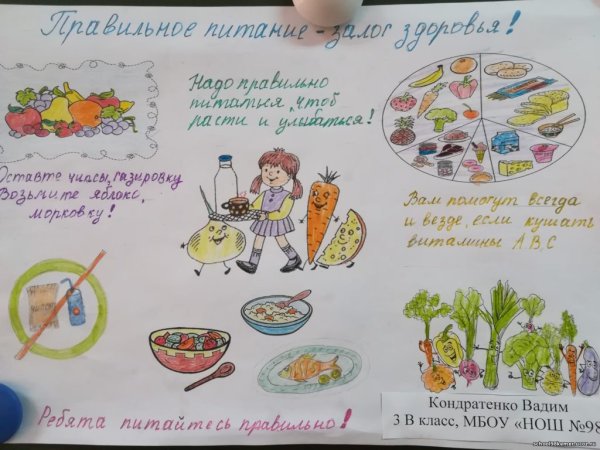 Правильное питание - залог здоровья!
Надо правильно
питаться, чтоб
расти и улыбаться!
Оставте чипсы, газировку
Возьмите яблоко,
морковку!
Вам помогут всегда
и везде, если кушать
витамины А, В, С
Ребята питайтесь правильно!
Кондратенко Вадим
3 В класс, МБОУ «НОШ №98